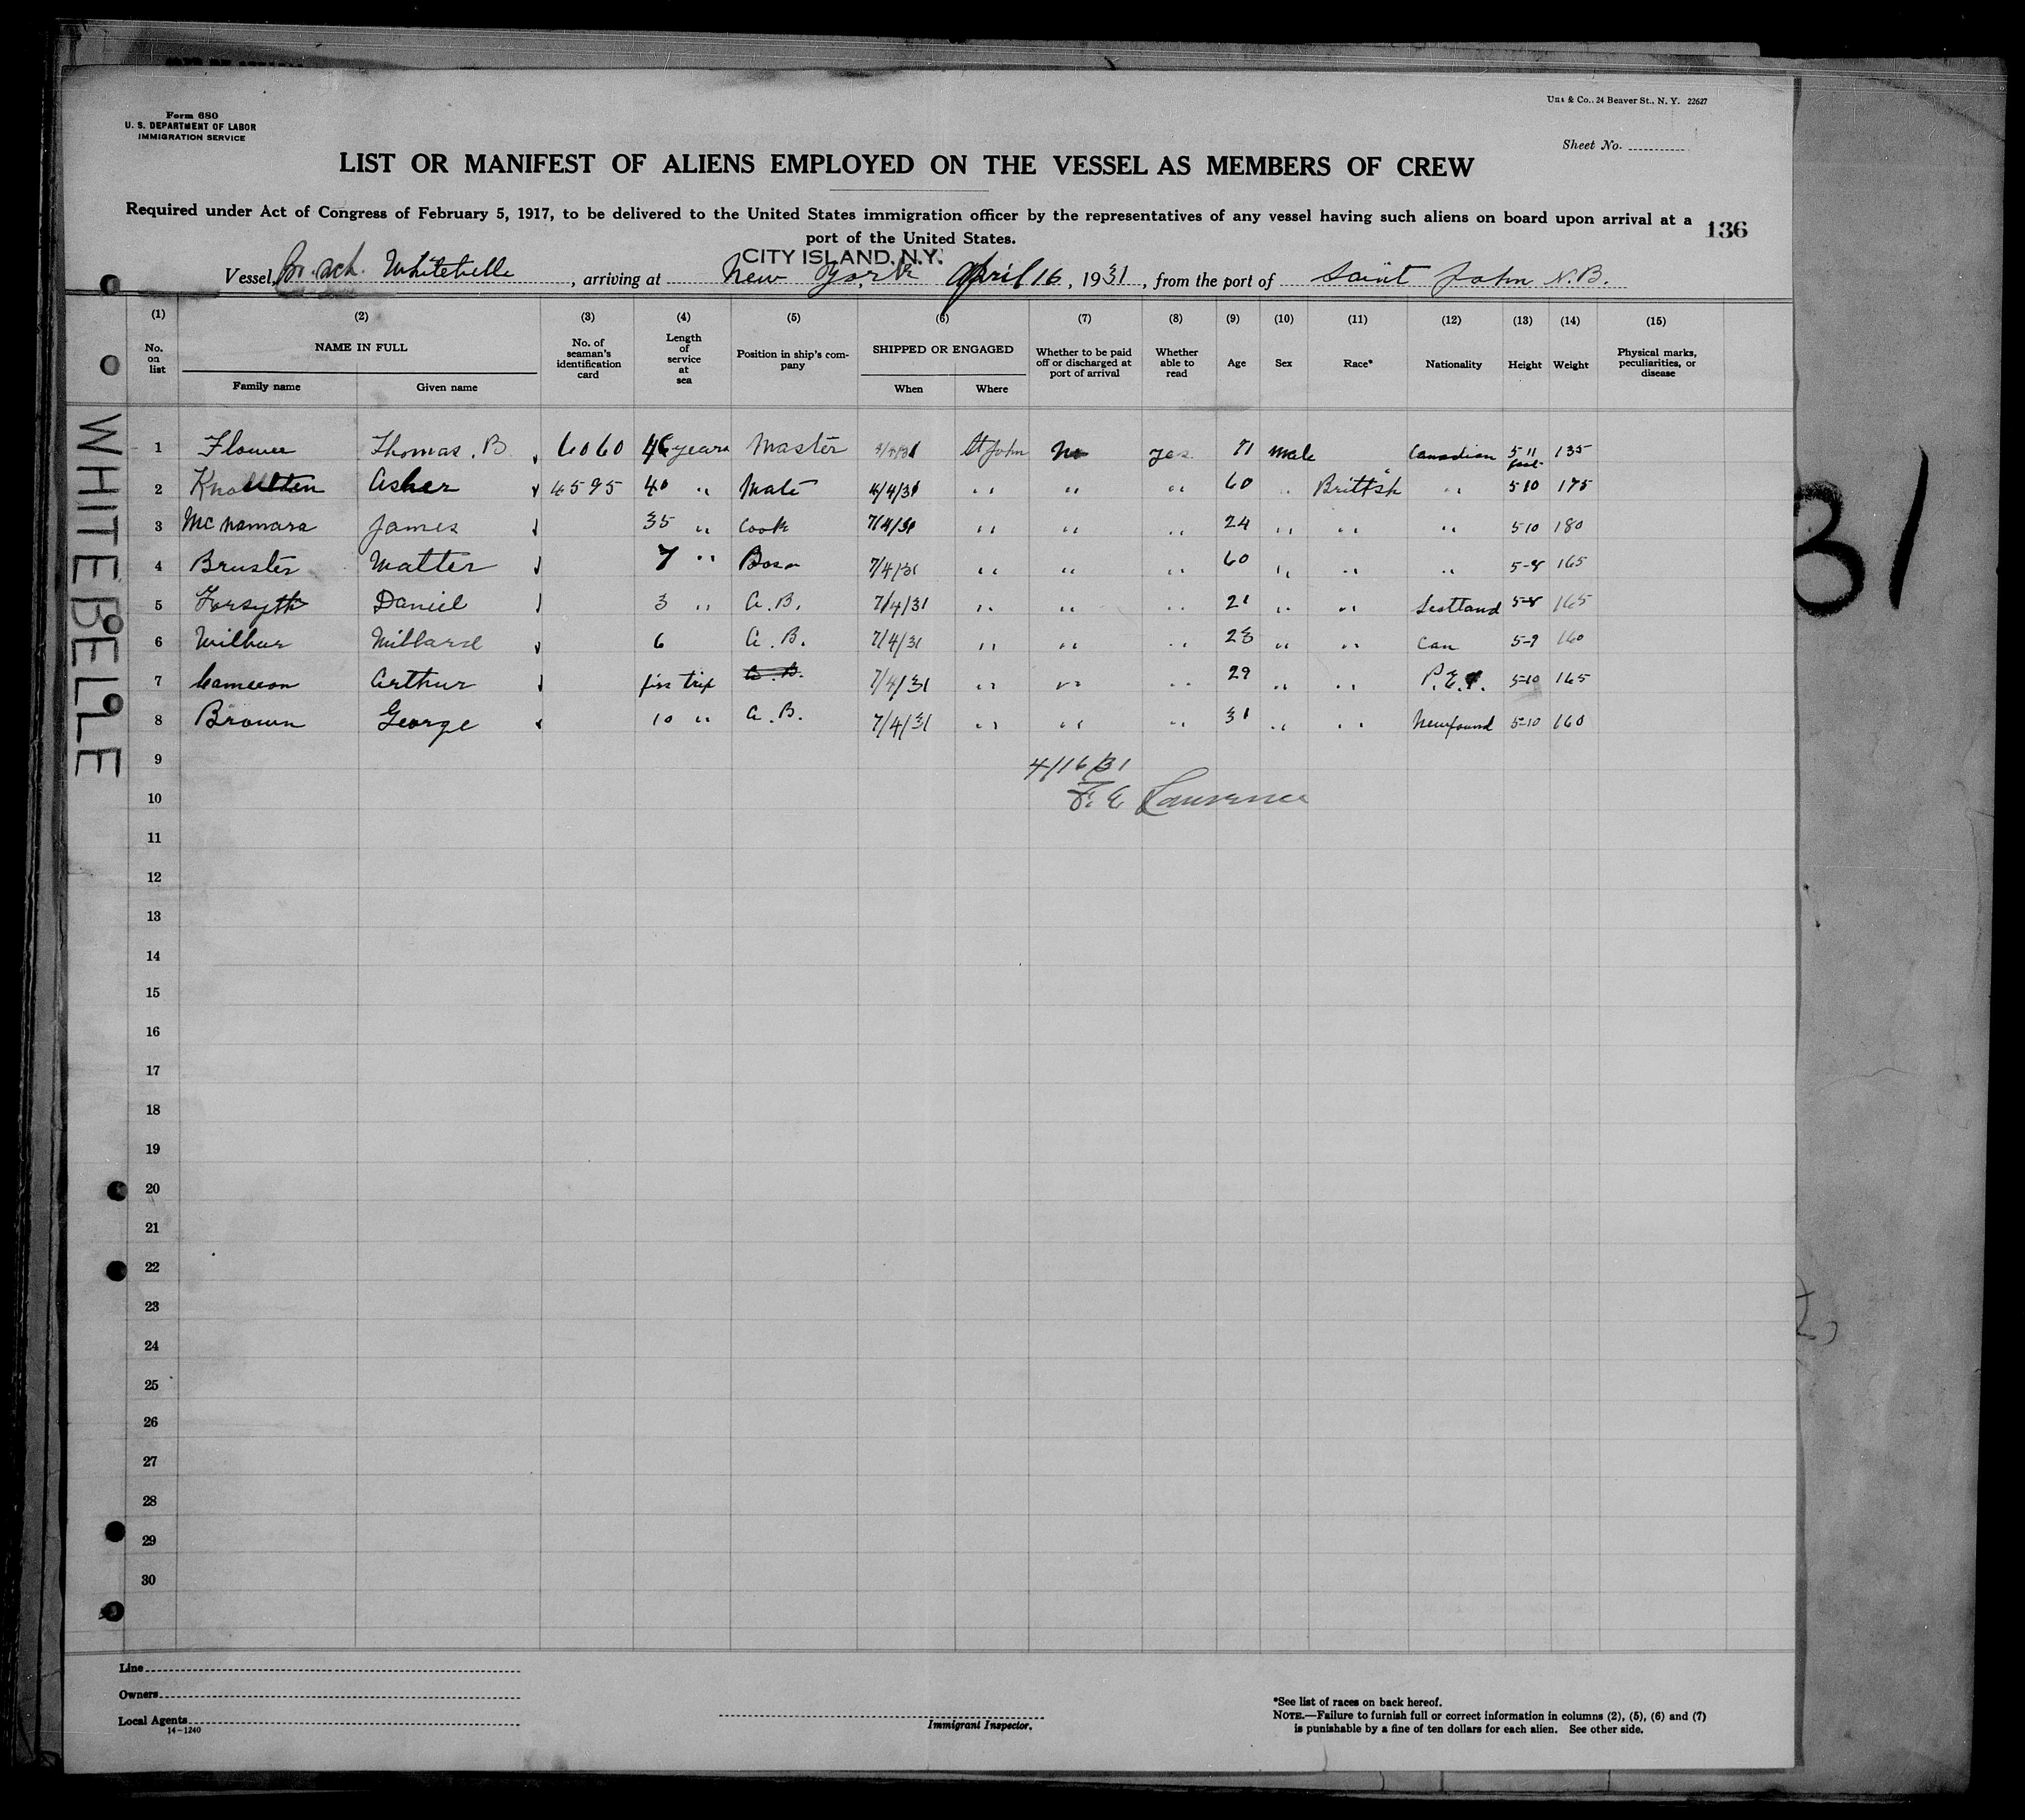 Form 680
U. S. DEPARTMENT OF LABOR
IMMIGRATION SERVICE
& Co., 24 Beaver St., N. Y. 22627
Sheet No.
LIST OR MANIFEST OF ALIENS EMPLOYED ON THE VESSEL AS MEMBERS OF CREW
Required under Act of Congress of February 5, 1917, to be delivered to the United States immigration officer by the representatives of any vessel having such aliens on board upon arrival at a
port of the United States.
136
CITY ISLAND, N.Y.
Vessel, Br. Sch. Whitebelle, arriving at New York April 16, 1931, from the port of Saint John N.B.
(1) (2) (3) (4) (5) (6) (7) (8) (9) (10) (11) (12) (13) (14) (15)
No. on list NAME IN FULL Family name Given name No. of seaman's identification card Length of service at sea Position in ship's company SHIPPED OR ENGAGED When Where Whether to be paid off or discharged at port of arrival Whether able to read Age Sex Race* Nationality Height Weight Physical marks, peculiarities, or disease
1 Flower Thomas. B 6060 years Master St John No yes 71 male Canadian 5 11 foot 135
2 Asher 4595 40 " Mate 4/4/31 " " " 60 " British " 5 10 175
3 McNamara James 35 " Cook 7/4/31 " " " 24 " " " 5 10 180
4 Bruster Matter 7 " Bosn 7/4/31 " " " 60 " " " 5-8 165
5 Forsyth Daniel 3 " A.B. 7/4/31 " " " 21 " " Scottand 5-8 165
6 Wilbur Millard 6 A.B. 7/4/31 " " " 28 " " Can 5-9 160
7 Cameron Arthur firs trip A.B. 7/4/31 " " " 29 " " P.E.I. 5-10 165
8 Brown George 10 " A.B. 7/4/31 " " " 31 " " Newfound 5-10 160
9 4/16/31
10 F. E. Lawrence
11
12
13
14
15
16
17
18
19
20
21
22
23
24
25
26
27
28
29
30
WHITEBELLE
31
Line
Owners
Local Agents
14-1240
Immigrant Inspector.
*See list of races on back hereof.
NOTE.—Failure to furnish full or correct information in columns (2), (5), (6) and (7)
is punishable by a fine of ten dollars for each alien. See other side.